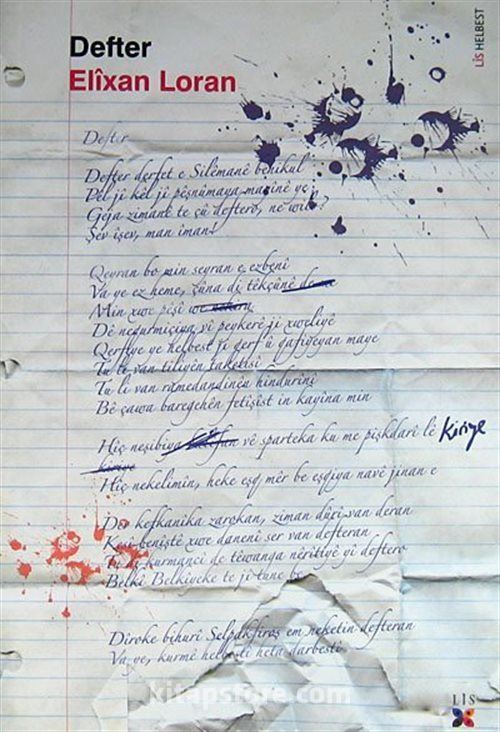 Defter
Elîxan Loran
LîS HELBEST
Defter
Defter derfet e Silêmanê behikul
Pel ji kêl ji pêşnûmaya marînê ye
Geja zimanê te çû deftero, ne wilo?
Şev îşev, man îman!
Qeyran bo min seyran e ezbenî
Va ye ez heme, çûna di têkçûnê
Min xwe pîşê
Dê negurmiçiya vî peykerê ji xweliyê
Qerfiye ye helbest ji qerf û qafiyeyan maye
Tu li van tiliyên taketîsî
Tu li van hindurînî
Bê çawa baregehên fetîşîst in kayîna min
Hîç nesîbiya vê sparteka ku me pişkdarî lê kiriye
kiriye
Hîç nekelimîn, heke eşq mêr be eşqiya navê jinan e
Der kefkanîka zarokan, ziman dûrî van deran
Kesî benîştê xwe danenî ser van defteran
kurmancî de têwanga nêrîtiyê yî deftero
Belkî Belkîyeke te jî tune be
Dîroke bihurî Selpakfiroş em neketin defteran
Va ye, kurmê helbestî heta darbestî
kitapstore.com
LîS